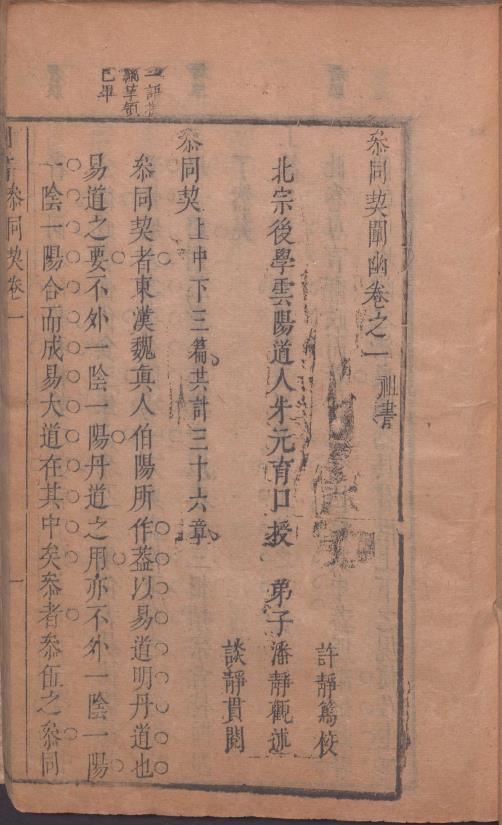 叅同契闡幽卷之一　祖書
許靜篤校
北宗後學雲陽道人朱元育口授　弟子潘靜觀述
談靜貫閱
叅同契上中下三篇共計三十六章
叅同契者東漢魏眞人伯陽所作葢以易道明丹道也
易道之要不外一陰一陽丹道之用亦不外一陰一陽
一陰一陽合而成易大道在其中矣叅者叅伍之叅同
叅同契卷一　一
已畢